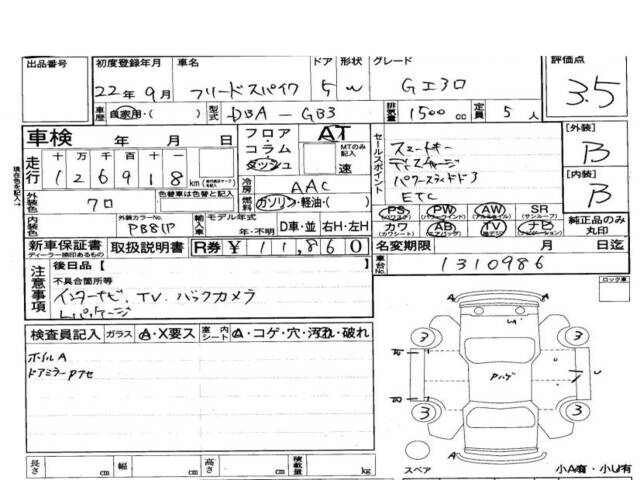 出品番号 初度登録年月 車名 ドア 形状 グレード 評価点
22年9月 フリードスパイク 5 W GI30 3.5
車歴 自家用・( ) 型式 DBA-GB3 排気量 1500cc 定員 5人
車検 年 月 日 フロア・コラム ダッシュ AT MTのみ記入 速
セールスポイント スマートキー
ディスチャージ
パワースライドドア
ETC
[外装] B
[内装] B
走行 十万千百十一 126918 km
冷房 AAC
燃料 ガソリン・軽油・( )
外装色 クロ 色替車は色替と記入
内装色 外装カラーNo. PB81P 輸入車 モデル年式 年・不明 D車・並 右H・左H
PS PW AW SR(サンルーフ)
カワ(カワシート) AB TV ナビ 純正品のみ丸印
新車保証書 取扱説明書 R券 ¥11,860 名変期限 月 日迄
ディーラー捺印あるもの
車台No. 1310986
注意事項 後日品[ ]
不具合箇所等
インターナビ、TV、バックカメラ
Lパッケージ
ロック車
検査員記入 ガラス A・X要ス 室内シート A・コゲ・穴・汚れ・破れ
ホイルA
ドアミラーPアセ
3 3
Pハゲ
3 3
A
長さ cm 幅 cm 高さ cm 積載量 kg
スペア 小A有・小U有